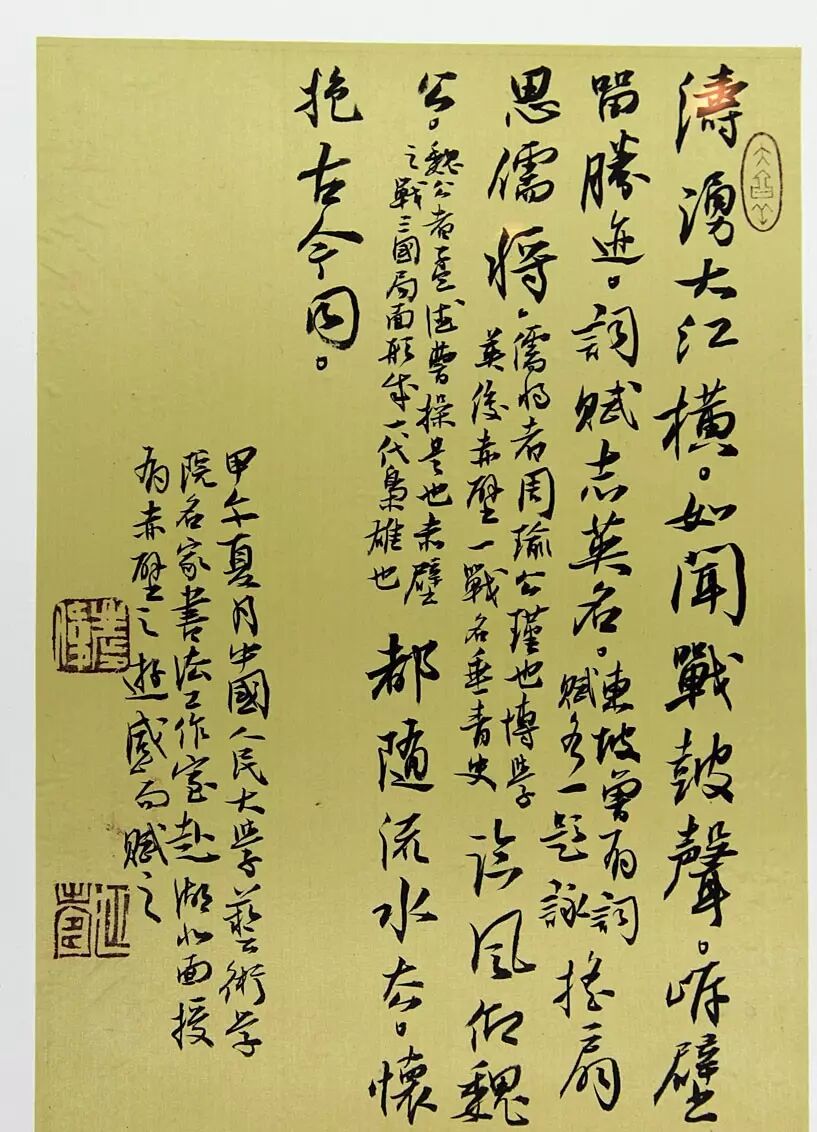 濤湧大江橫。如聞戰鼓聲。岸壁
留勝迹。詞賦志英名。東坡曾有詞
賦各一題詠
搖扇
思儒將。儒將者周瑜公瑾也博學
英俊赤壁一戰名垂青史
臨風仰魏
公。魏公者孟德曹操是也赤壁
之戰三國局面形成一代梟雄也
都隨流水去。懷
抱古今同。
甲午夏月中國人民大學藝術學
院名家書法工作室赴湖北面授
有赤壁之遊感而賦之